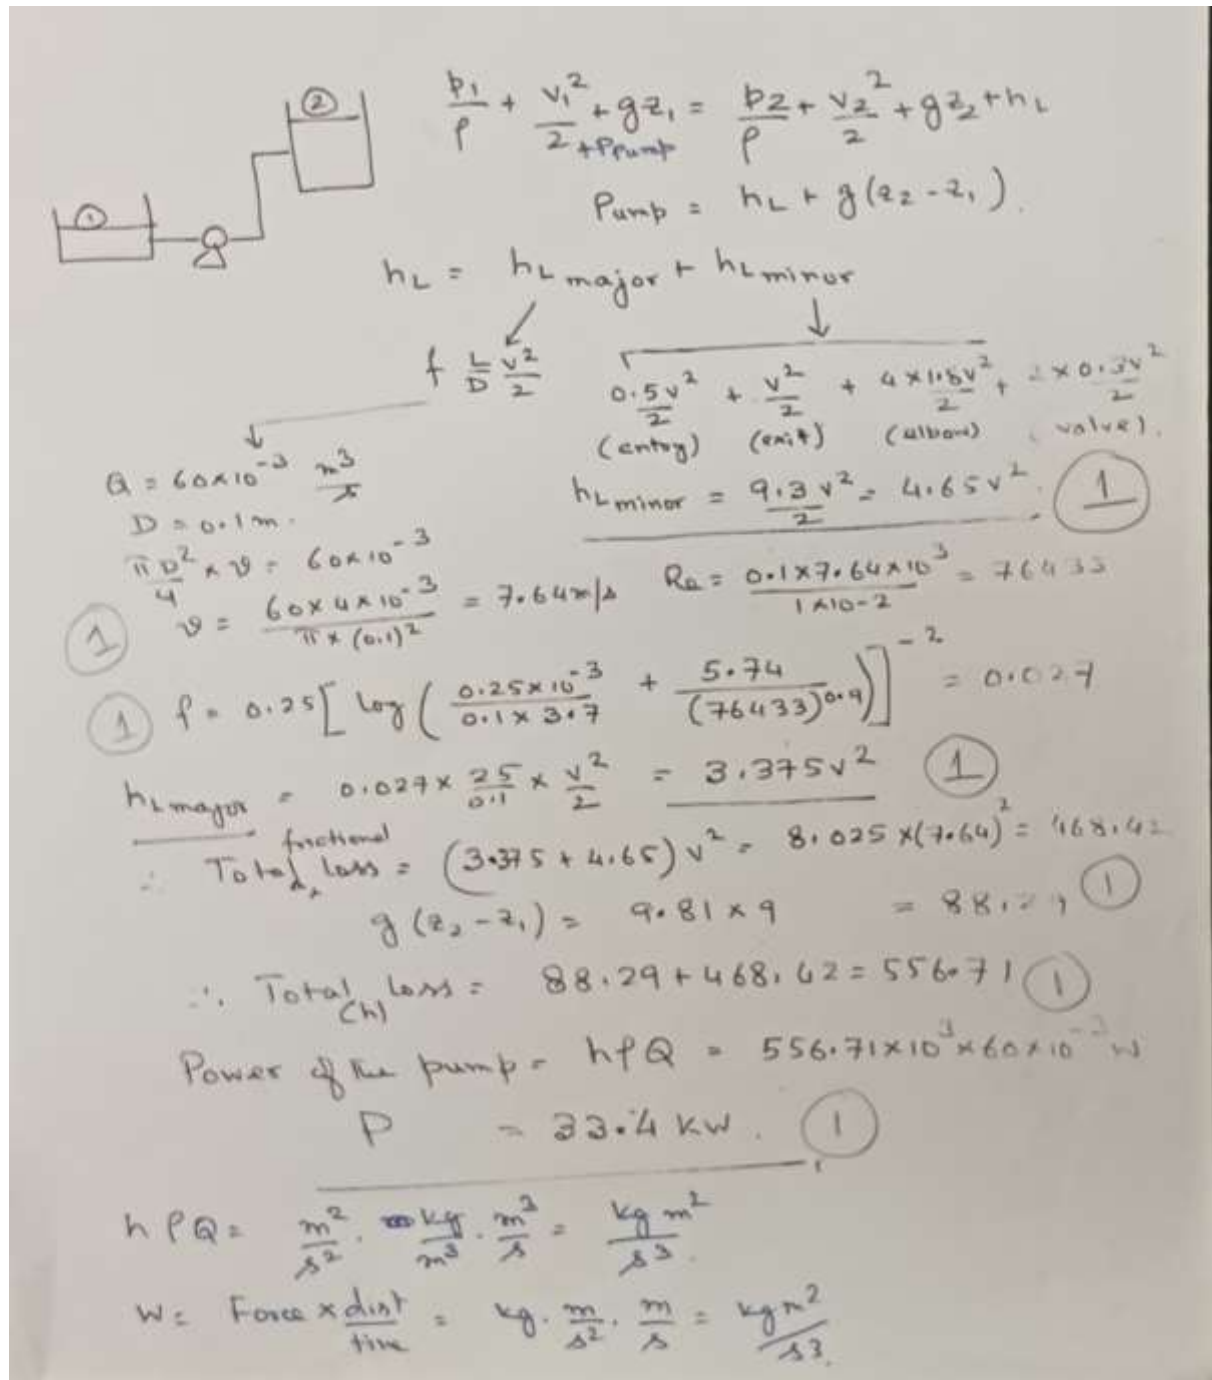 p1/ρ + v1²/2 + gz1 + Ppump = p2/ρ + v2²/2 + gz2 + hL
① ②
Pump = hL + g(z2 - z1).
hL = hL major + hL minor
f L/D v²/2
0.5v²/2 + v²/2 + 4×1.8v²/2 + 2×0.3v²/2
(entry) (exit) (elbow) (valve).
Q = 60×10⁻³ m³/s
hL minor = 9.3v²/2 = 4.65v². ①
D = 0.1m.
πD²/4 × v = 60×10⁻³
① v = 60×4×10⁻³/π×(0.1)² = 7.64m/s
Re = 0.1×7.64×10³/1×10-2 = 76433
① f = 0.25[log(0.25×10⁻³/0.1×3.7 + 5.74/(76433)^0.9)]⁻² = 0.027
hL major = 0.027 × 25/0.1 × v²/2 = 3.375v² ①
∴ Total frictional loss = (3.375 + 4.65)v² = 8.025×(7.64)² = 468.42
g(z2 - z1) = 9.81×9 = 88.29 ①
∴ Total loss (h) = 88.29 + 468.42 = 556.71 ①
Power of the pump = hρQ = 556.71×10³×60×10⁻³ W
P = 33.4 KW. ①
hρQ = m²/s² . kg/m³ . m³/s = kg m²/s³.
W = Force × dist/time = kg . m/s² . m/s = kg m²/s³.